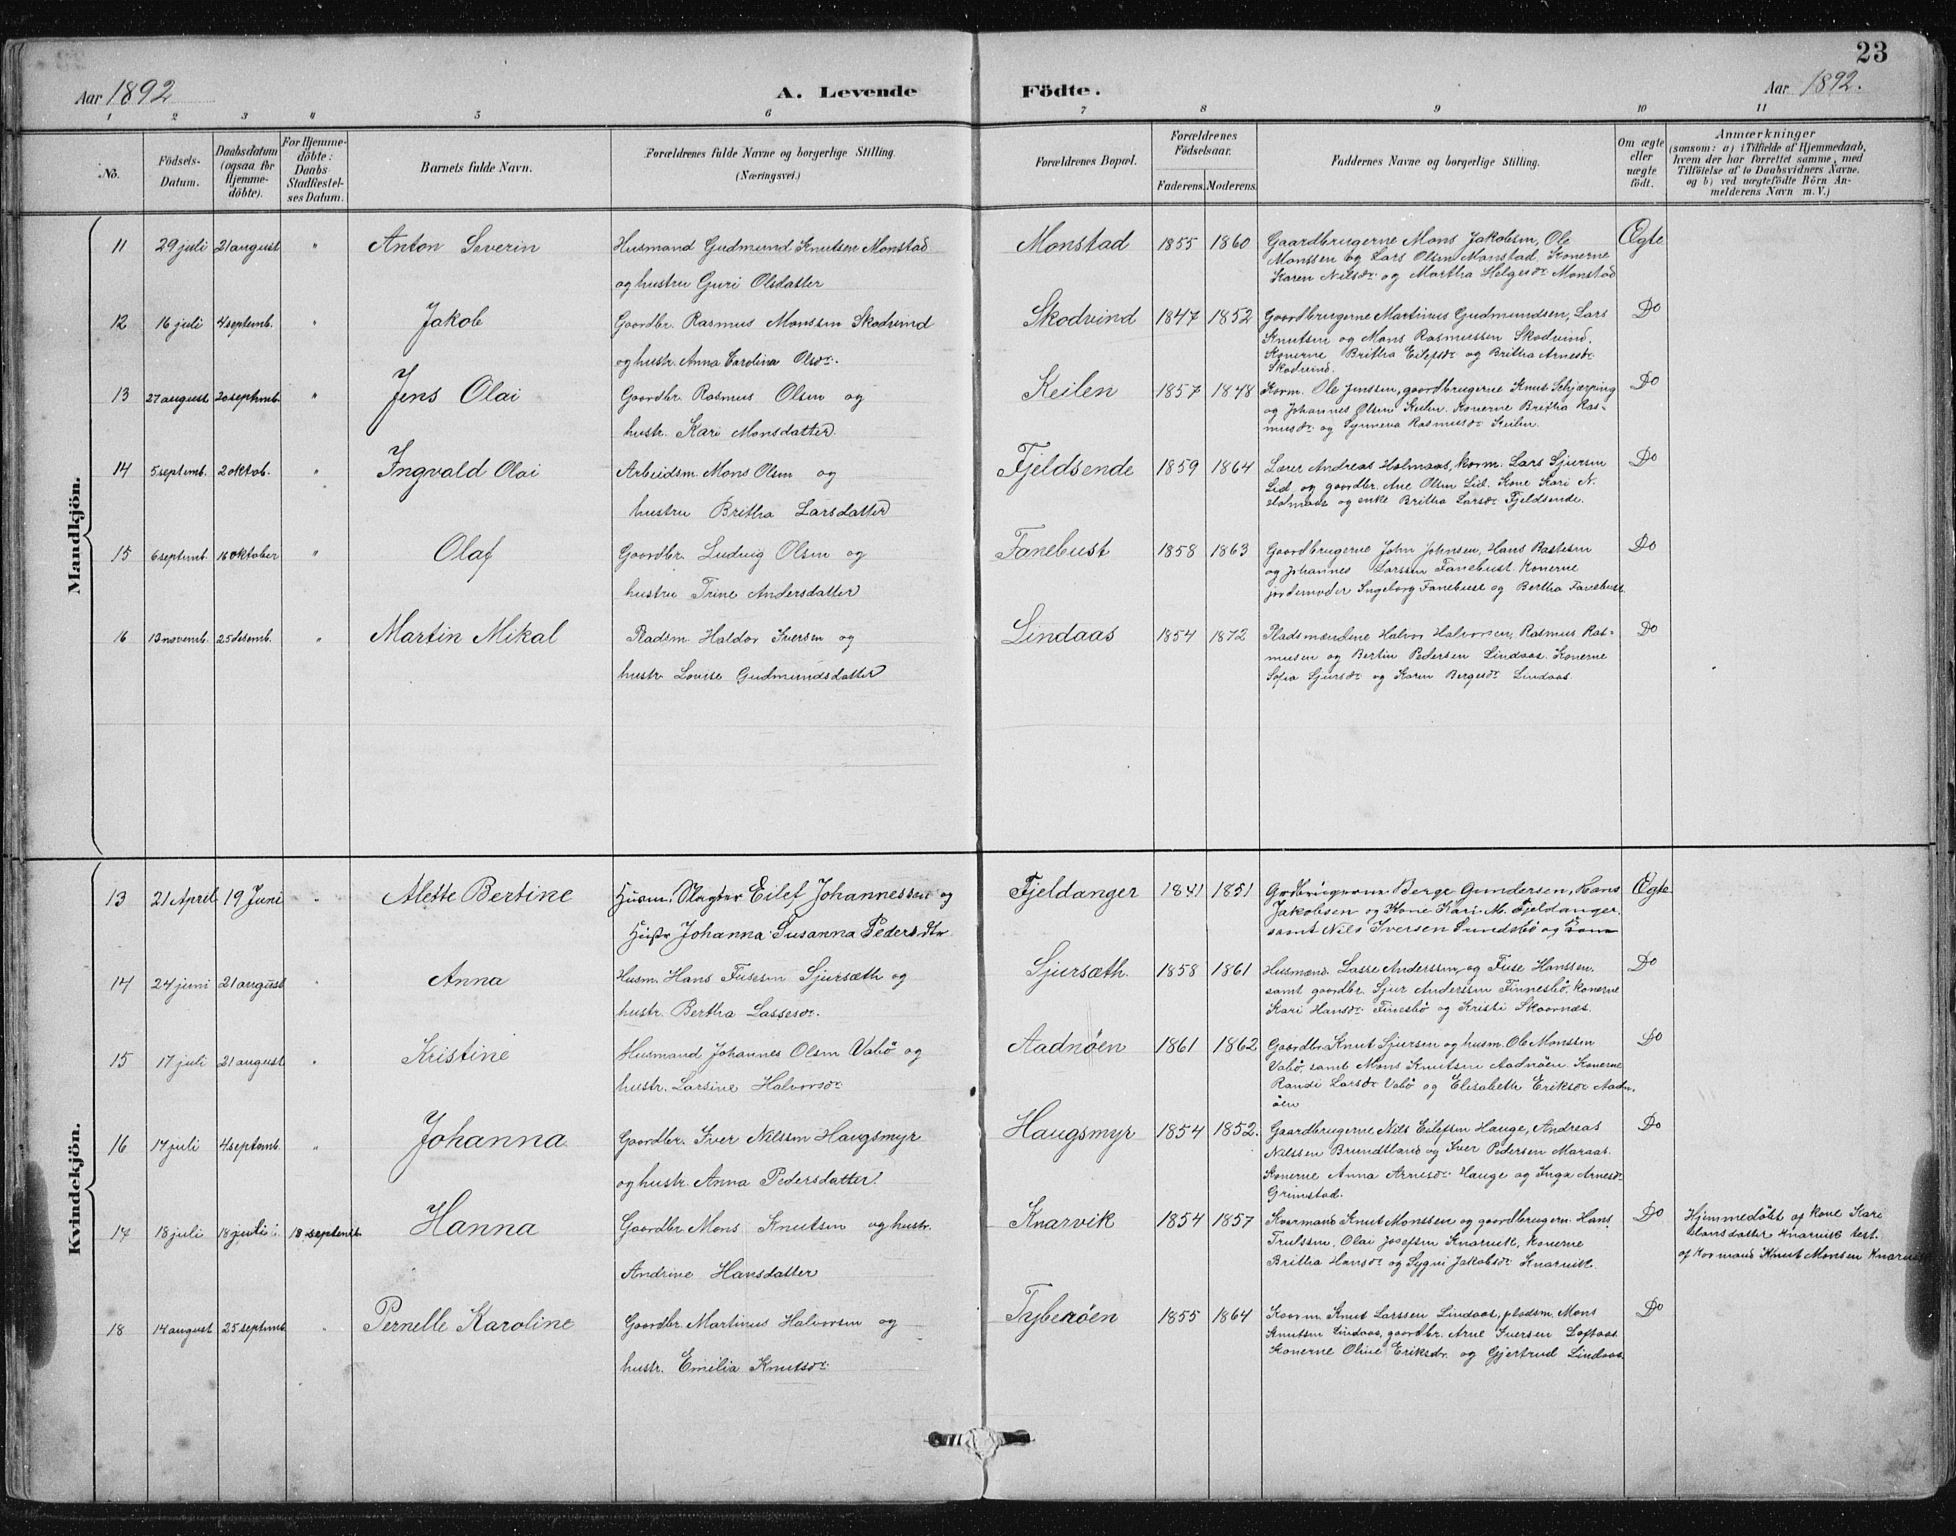 23
Aar 1892
A. Levende Födte.
Aar 1892.
1 2 3 4 5 6 7 8 9 10 11
No.
Födsels-Datum.
Daabsdatum (ogsaa for Hjemme-döbte).
For Hjemme-döbte: Daabs-Stadfæstel-ses Datum.
Barnets fulde Navn.
Forældrenes fulde Navne og borgerlige Stilling.
(Næringsvei.)
Forældrenes Bopæl.
Forældrenes Födselsaar.
Faderens. Moderens.
Faddernes Navne og borgerlig Stilling.
Om ægte eller uægte födt.
Anmærkninger
(saasom: a) i Tilfælde af Hjemmedaab,
hvem der har forrettet samme, med
Tilföielse af to Daabsvidners Navne.
og b) ved uægtefödte Börn An-
melderens Navn m. V.)
Mandkjön.
11 29 juli 21 august " Anton Severin Husmand Gudmund Knutsen Monstad Monstad 1855 1860 Gaardbrugerne Mons Jakobsen, Ole Ægte
og hustru Guri Olsdatter Monssen og Lars Olsen Monstad, Konerne
Karen Nilsdr. og Martha Helgesdr. Monstad
12 16 juli 4 septemb. " Jakob Gaardbr. Rasmus Monssen Skodvind Skodvind 1847 1852 Gaardbrugerne Martinus Gudmundsen, Lars Do
og hustr. Anna Carolina Olsdr. Knutsen og Mons Rasmussen Skodvind.
Konerne Britha Eilefsdr og Britha Arnesdr
Skodvind.
13 27 august 20 septemb. " Jens Olai Gaardbr. Rasmus Olsen og Keilen 1857 1848 Korm. Ole Jenssen, gaardbrugerne Knut Do
hustr. Kari Monsdatter. og Johannes Olsen Keilen. Konerne Britha Ras-
musdr og Synneva Rasmusdr Keilen.
14 5 septemb. 2 oktob. " Ingvald Olai Arbeidsm. Mons Olsen og Fjeldsende 1859 1864 Lærer Andreas Holmaas, korm. Lars Sjursen Do
hustru Britha Larsdatter Lid og gaardbr. Olsen Lid. Kone Kari N.
Holmaas og enke Britha Larsdr Fjeldsende.
15 6 septemb. 16 oktober " Olaf Gaardbr. Ludvig Olsen og Fanebust 1858 1863 Gaardbrugerne John Johnsen, Hans Do
hustru Trine Andersdatter og Johannes Larssen Fanebust. Konerne
jordemoder Ingeborg Fanebust og Bertha Fanebust
16 13 novemb. 25 desemb. " Martin Mikal Pladsm. Haldor Iversen og Lindaas 1854 1872 Pladsmændene Halvor Halvorsen, Rasmus Ras- Do
hustr. Louise Gudmundsdatter musen og Bertin Pedersen Lindaas. Konerne
Sofia Sjursdr og Karen Bergesdr Lindaas.
Kvindekjön.
13 21 April 19 Juni " Alette Bertine Husm. Slagter Eilef Johannessen og Fjeldanger 1841 1851 Gardbrugerne Berge Gundersen, Hans Ægte
Hustr Johanna Susanna Pedersdtr Jakobsen og Kone Kari M. Fjeldanger.
samt Nils Iversen Sundsbö og
14 24 juni 21 august " Anna Husm. Hans Fusesen Sjursæth og Sjursæth. 1858 1861 Husmænd. Lasse Anderssen og Fuse Hanssen. Do
hustr. Bertha Lassesdr. samt gaardbr. Sjur Anderssen Finnesbö. Konerne
Kari Hansdr Finesbö og Kristi Skaornæs.
15 17 juli 21 august " Kristine Husmand Johannes Olsen Vabö og Aadnöen 1861 1862 Gaardbr. Knut Sjursen og husm. Ole Monssen Do
hustr. Larsine Halvorsdr Vabö, samt Mons Knutsen Aadnöen. Konerne
Randi Larsdr Vabö og Elisabeth Eriksdr Aadn-
öen
16 17 juli 4 septemb. " Johanna Gaardbr. Iver Nilssen Haugsmyr Haugsmyr 1854 1852. Gaardbrugerne Nils Eilefsen Hauge, Andreas Do
og hustr. Anna Pedersdatter. Nilssen Brundtland og Iver Pedersen Maraas.
Konerne Anna Arnesdr Hauge og Inga Arnesdr
Grimstad.
17 18 juli 18 juli 18 septemb. Hanna Gaardbr. Mons Knutsen og hustr. Knarvik 1854 1857 Kormand Knut Monssen og gaardbrugern. Hans Do Hjemmedöbt af kone Kari
Andrine Hansdatter Trulssen, Olai Josefsen Knarvik, Konerne Hansdatter Knarvik test.
Britha Hansdr og Sygni Jakobsdr Knarvik. af Kormand Knut Monsen Knarvik
18 14 august 25 septemb. " Pernelle Karoline Gaardbr. Martinus Halvorsen og Tyberöen 1855 1864 Korm. Knut Larssen Lindaas, pladsm. Mons Do
hustr. Emilia Knutsdr Knutsen Lindaas, gaardbr. Arne Iversen Loftaas
Konerne Oline Eriksdr. og Gjertrud Lindaas.